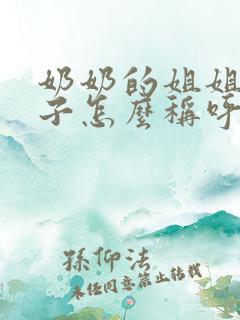 奶奶的姐姐
子怎麼稱呼
孫仰法
未经同意禁止转载